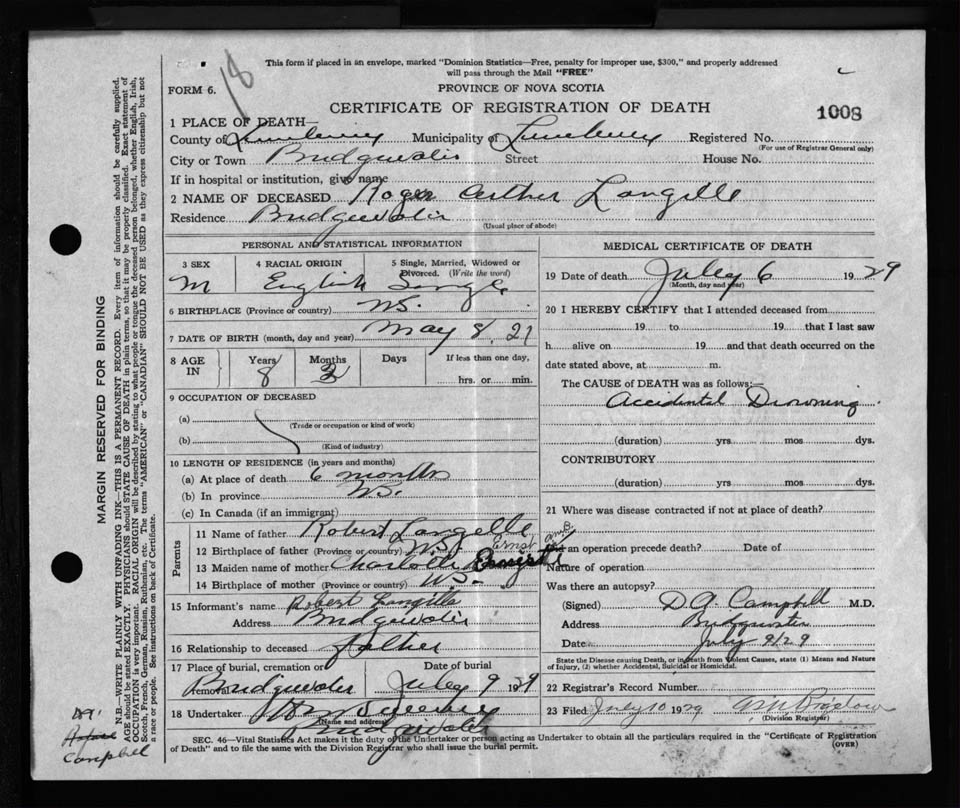 18
This form if placed in an envelope, marked "Dominion Statistics—Free, penalty for improper use, $300," and properly addressed
will pass through the Mail "FREE"
FORM 6.
PROVINCE OF NOVA SCOTIA
CERTIFICATE OF REGISTRATION OF DEATH
1008
1 PLACE OF DEATH—
County of Lunenburg Municipality of Lunenburg Registered No.
(For use of Registrar General only)
City or Town Bridgewater Street House No.
If in hospital or institution, give name
2 NAME OF DECEASED Roger Arthur Langille
Residence Bridgewater
(Usual place of abode)
PERSONAL AND STATISTICAL INFORMATION
3 SEX
M
4 RACIAL ORIGIN
English
5 Single, Married, Widowed or
Divorced. (Write the word)
Single
6 BIRTHPLACE (Province or country) NS.
7 DATE OF BIRTH (month, day and year) May 8, 21
8 AGE
IN
Years
8
Months
Days
If less than one day,
hrs. or min.
9 OCCUPATION OF DECEASED
(a)
(Trade or occupation or kind of work)
(b)
(Kind of industry)
10 LENGTH OF RESIDENCE (in years and months)
(a) At place of death 6 months
(b) In province NS.
(c) In Canada (if an immigrant)
Parents
11 Name of father Robert Langille
12 Birthplace of father (Province or country) NS
13 Maiden name of mother Charlotte
14 Birthplace of mother (Province or country) NS.
15 Informant's name Robert Langille
Address Bridgewater
16 Relationship to deceased father
17 Place of burial, cremation or
removal Bridgewater
Date of burial
July 9 1929
18 Undertaker
(Name and address)
Bridgewater
MEDICAL CERTIFICATE OF DEATH
19 Date of death July 6 1929
(Month, day and year)
20 I HEREBY CERTIFY that I attended deceased from
19 to 19 that I last saw
h alive on 19 and that death occurred on the
date stated above, at m.
The CAUSE OF DEATH was as follows:—
Accidental Drowning
(duration) yrs mos dys.
CONTRIBUTORY
(duration) yrs mos dys.
21 Where was disease contracted if not at place of death?
Did an operation precede death? Date of
Nature of operation
Was there an autopsy?
(Signed) D A Campbell M.D.
Address Bridgewater
Date July 9/29
State the Disease causing Death, or in Death from Violent Causes, state (1) Means and Nature
of Injury, (2) whether Accidental, Suicidal or Homicidal.
22 Registrar's Record Number
23 Filed July 10 1929
(Division Registrar)
SEC. 46—Vital Statistics Act makes it the duty of the Undertaker or person acting as Undertaker to obtain all the particulars required in the "Certificate of Registration
of Death" and to file the same with the Division Registrar who shall issue the burial permit.
(OVER)
MARGIN RESERVED FOR BINDING
N.B.—WRITE PLAINLY WITH UNFADING INK—THIS IS A PERMANENT RECORD. Every item of information should be carefully supplied.
AGE should be stated EXACTLY. PHYSICIANS should STATE CAUSE OF DEATH in plain terms, so that it may be properly classified. Exact statement of
OCCUPATION is very important. RACIAL ORIGIN will be described by stating to what people or tongue the deceased person belonged, whether English, Irish,
Scotch, French, German, Russian, Ruthenian, etc. The terms "AMERICAN" or "CANADIAN" SHOULD NOT BE USED as they express citizenship but not
a race or people. See instructions on back of Certificate.
Campbell